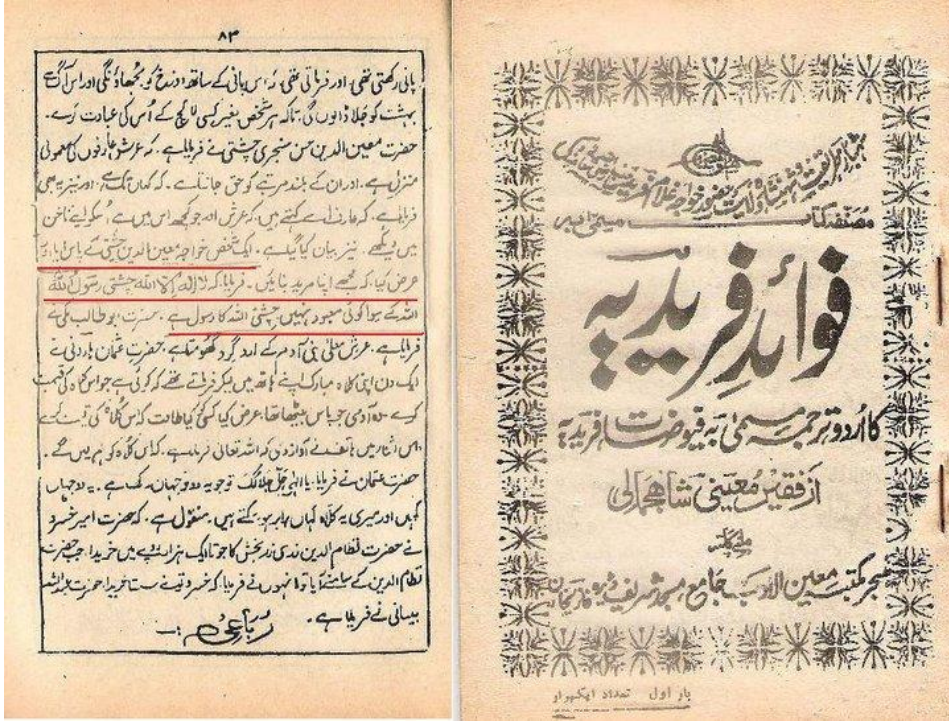 ۸۳
پانی رکھتی تھی، اور فرماتی تھی کہ اس پانی کے ساتھ دوزخ کو بجھاؤنگی اور اس آگ سے
بہشت کو جلا ڈالوں گی تاکہ ہر شخص بغیر کسی لالچ کے اُس کی عبادت کرے۔
حضرت معین الدین حسن سنجری چشتی نے فرمایا ہے۔ کہ عرش عارفوں کی معمولی
منزل ہے۔ اور ان کے بلند مرتبے کو حق جانتا ہے۔ کہ کہاں تک ہے، اور نیز یہ بھی
فرمایا ہے۔ کہ عارف اسے کہتے ہیں، کہ عرش اور جو کچھ اس میں ہے، سکو اپنے ناخن
میں دیکھے۔ نیز بیان کیا گیا ہے۔ ایک شخص خواجہ معین الدین چشتی کے پاس آیا، اور
عرض کیا، کہ مجھے اپنا مرید بنائیں۔ فرمایا کہ لا اِلٰہ اِلا اللہ چشتی رسول اللہ
اللہ کے سوا کوئی معبود نہیں چشتی اللہ کا رسول ہے۔ حضرت ابو طالب مکی نے
فرمایا ہے۔ عرش معلیٰ بنی آدم کے ارد گرد گھومتا ہے۔ حضرت عثمان ہارونی نے
ایک دن اپنی کلاہ مبارک اپنے ہاتھ میں لیکر فرماتے تھے کہ کوئی ہے جو اس کلاہ کی قیمت
کرے۔ آدمی جو پاس بیٹھا تھا، عرض کیا، کسی کی کیا طاقت کہ اس کلاہ کی قیمت کرے
اس اثنا میں ہاتف نے آواز دی کہ اللہ تعالیٰ فرماتا ہے۔ کہ اس کلاہ کو ہم
حضرت عثمان نے فرمایا، یا الٰہی جل جلالک تو جو یہ دو جہان رکھتا ہے۔ یہ دو جہاں
کہاں اور میری یہ کلاہ کہاں برابر ہو سکتے ہیں۔ منقول ہے۔ کہ حضرت امیر خسرو
نے حضرت نظام الدین زری زر بخش کا جوتا ایک ہزار روپے میں خریدا، جب حضرت
نظام الدین کے سامنے آیا تو انہوں نے فرمایا کہ خسرو تو نے سستا خریدا، حضرت عبداللہ
نے فرمایا ہے۔
رباعی
مصنفہ کتاب
فوائدِ فریدیہ
کا اُردو ترجمہ مسمّٰی بہ فیوضات فریدیہ
از فقیر معینی شاہجمالی
ملنے کا پتہ
مکتبہ معین الادب جامع مسجد شریف ڈیرہ غازیخان
بار اول تعداد ایکہزار